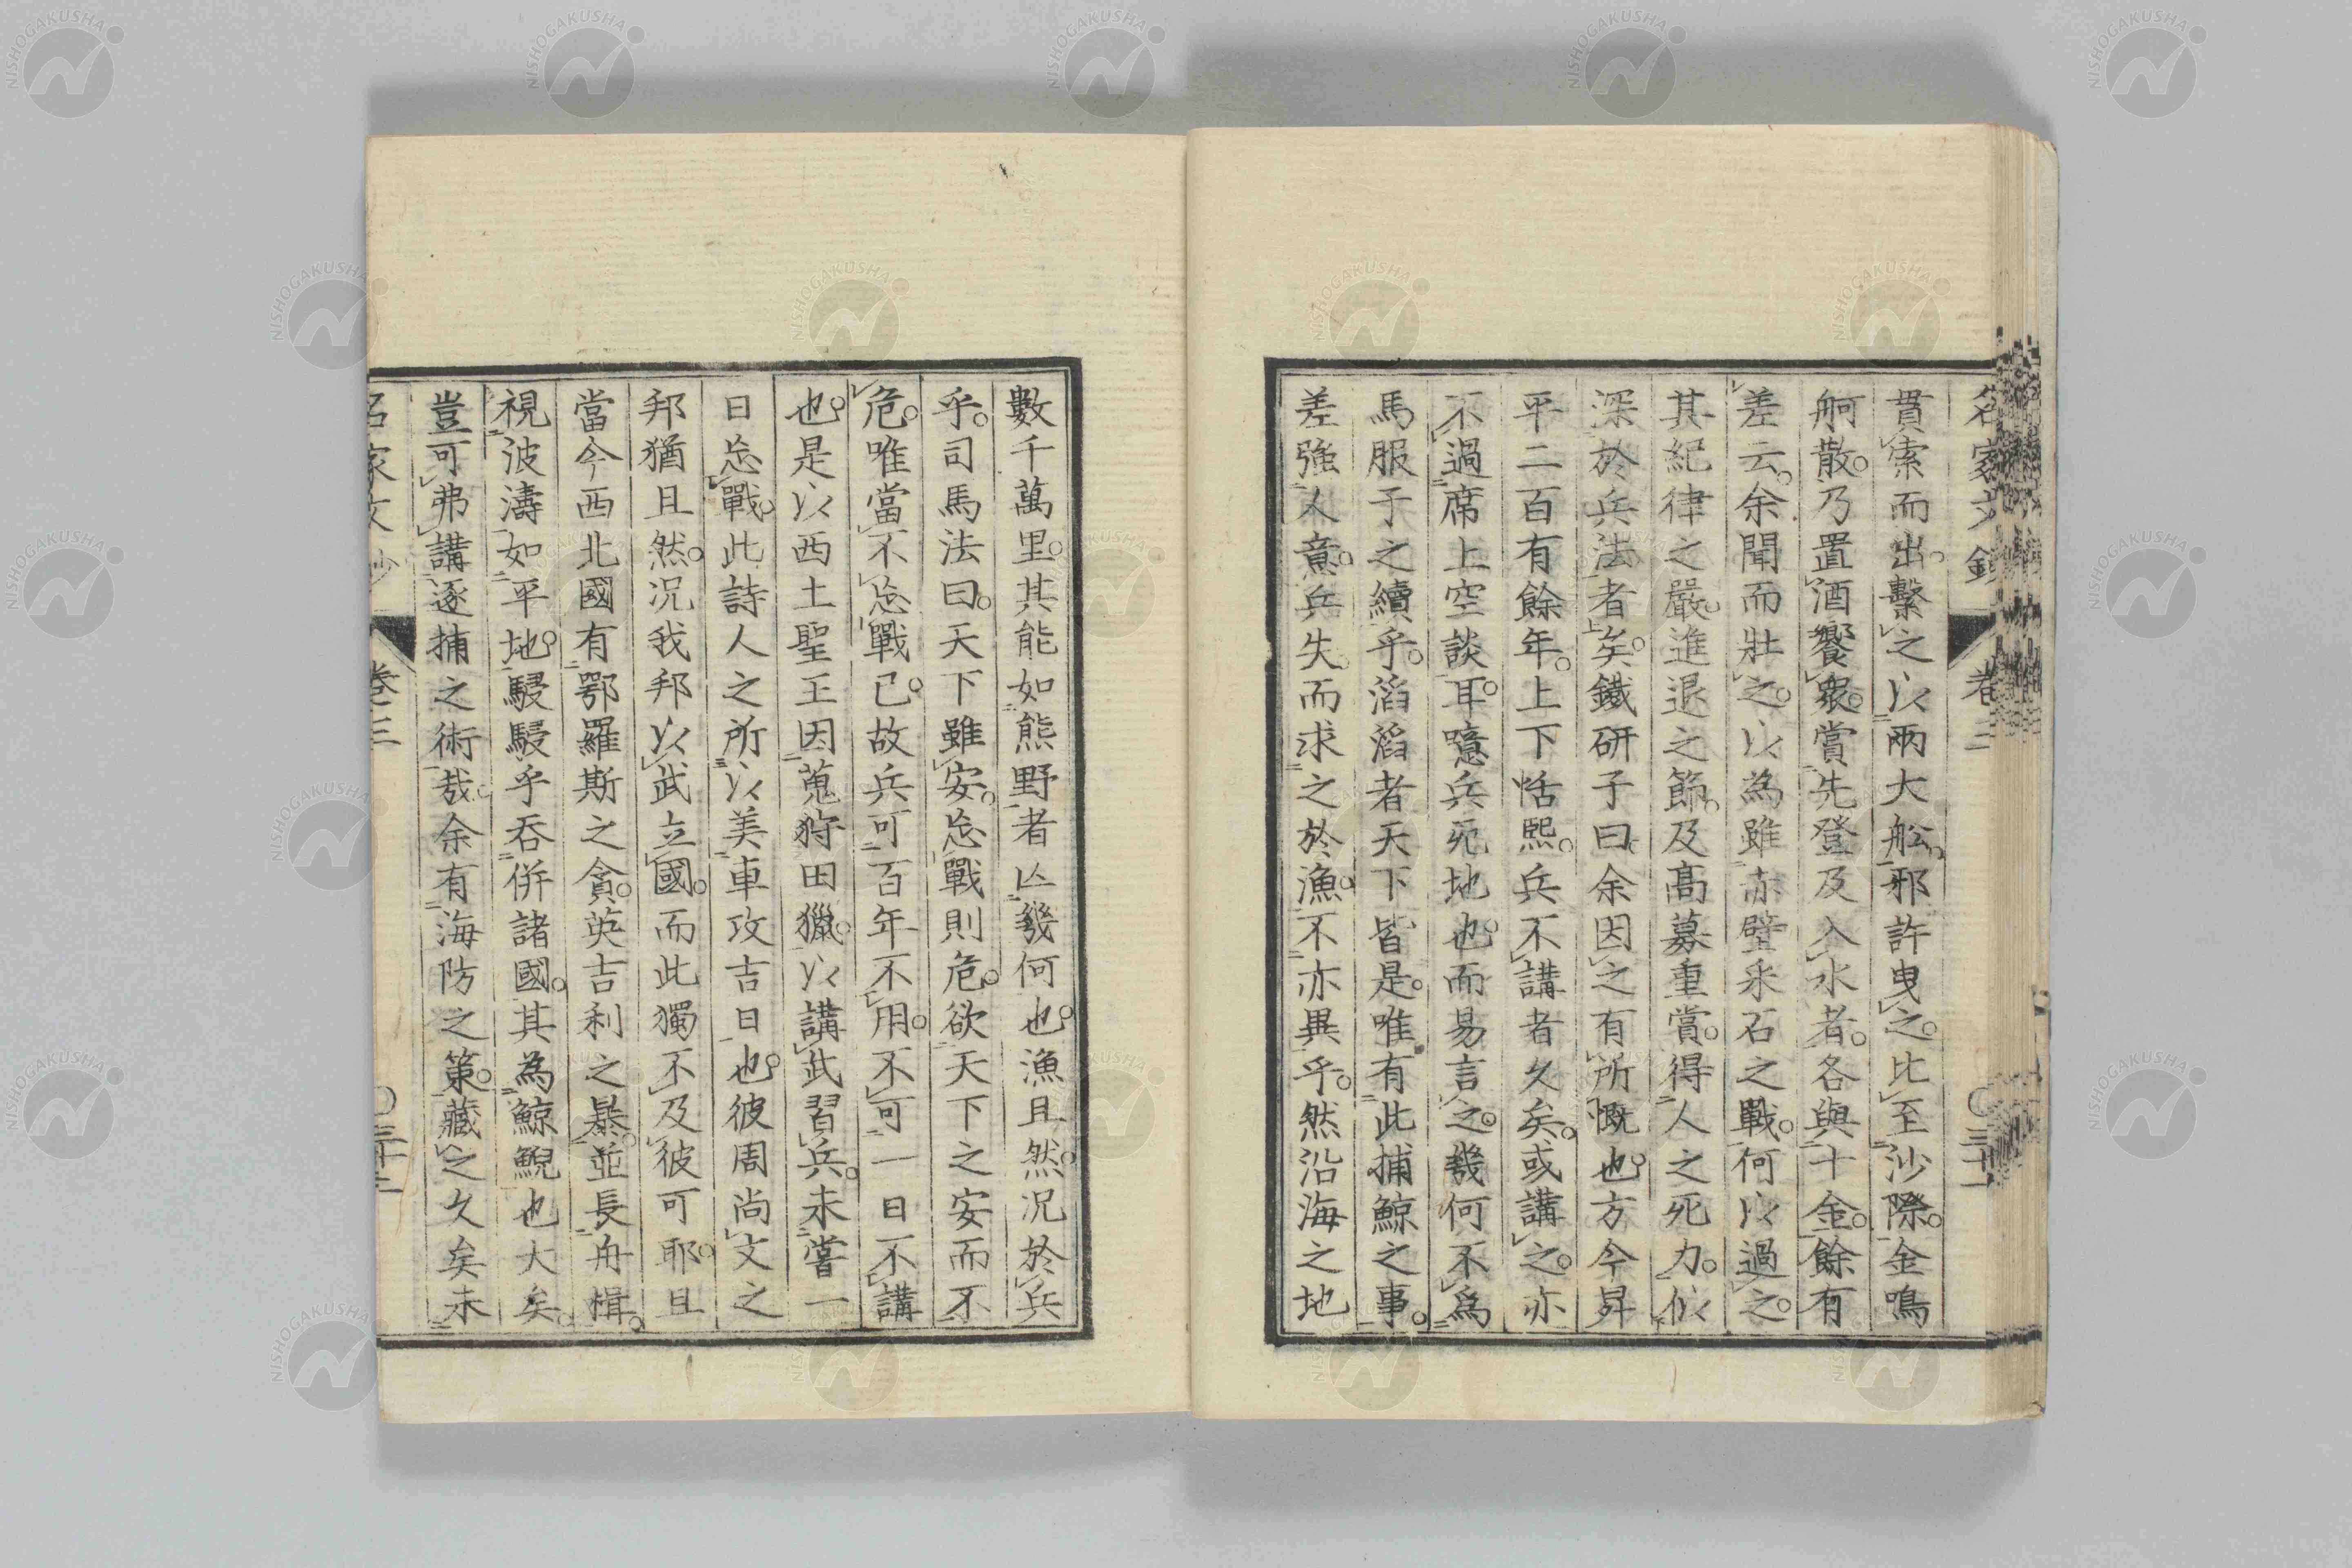 名家文鈔 卷三 〇三十一
貫索而出。繫之以兩大舩。邪許曳之。比至沙際。金鳴
舸散。乃置酒饗衆。賞先登及入水者。各與十金。餘有
差云。余聞而壯之。以為雖赤壁采石之戰。何以過之。
其紀律之嚴。進退之節。及髙募重賞。得人之死力。似
深於兵法者矣。鐵研子曰。余因之有所慨也。方今昇
平二百有餘年。上下恬熙。兵不講者久矣。或講之。亦
不過席上空談耳。噫兵死地也。而易言之。幾何不爲
馬服子之續乎。滔滔者天下皆是。唯有此捕鯨之事。
差强人意。兵失。而求之於漁。不亦異乎。然沿海之地
數千萬里。其能如熊野者亾幾何也。漁且然。況於兵
乎。司馬法曰。天下雖安。忘戰則危。欲天下之安而不
危。唯當不忘戰已。故兵可百年不用。不可一日不講
也。是以西土聖王因蒐狩田獵。以講武習兵。未嘗一
日忘戰。此詩人之所以美車攻吉日也。彼周尚文之
邦猶且然。況我邦以武立國。而此獨不及彼可耶。且
當今西北國有鄂羅斯之貪。英吉利之暴。並長舟楫。
視波濤如平地。駸駸乎呑併諸國。其為鯨鯢也大矣。
豈可弗講逐捕之術哉。余有海防之策。藏之久矣。未
名家文鈔 卷三
NISHOGAKUSHA